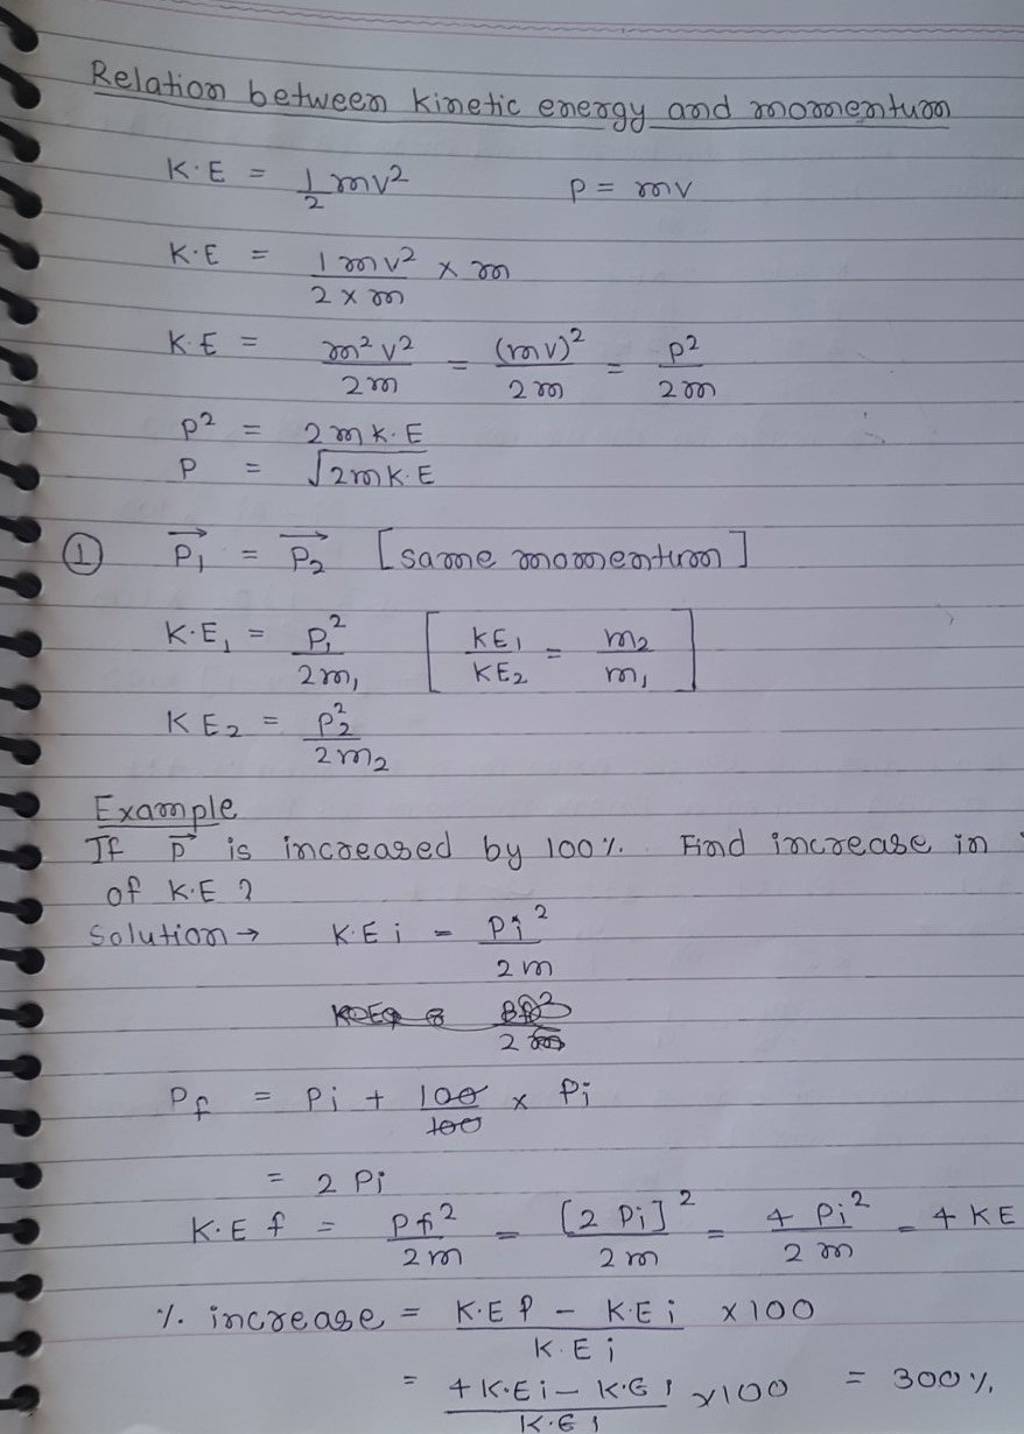 Relation between kinetic energy and momentum
K.E = 1/2 mv² P = mv
K.E = 1 mv² / 2 × m × m
K.E = m² v² / 2m = (mv)² / 2m = P² / 2m
P² = 2mK.E
P = √2mK.E
① P₁→ = P₂→ [same momentum]
K.E₁ = P₁² / 2m₁ [KE₁ / KE₂ = m₂ / m₁]
KE₂ = P₂² / 2m₂
Example
If P→ is increased by 100%. Find increase in
of K.E ?
Solution → K.E i = Pi² / 2m
Pf = Pi + 100/100 × Pi
= 2 Pi
K.E f = Pf² / 2m = [2 Pi]² / 2m = 4 Pi² / 2m = 4 KE
% increase = K.E f - K.E i / K.E i × 100
= 4 K.E i - K.E i / K.E i × 100 = 300%